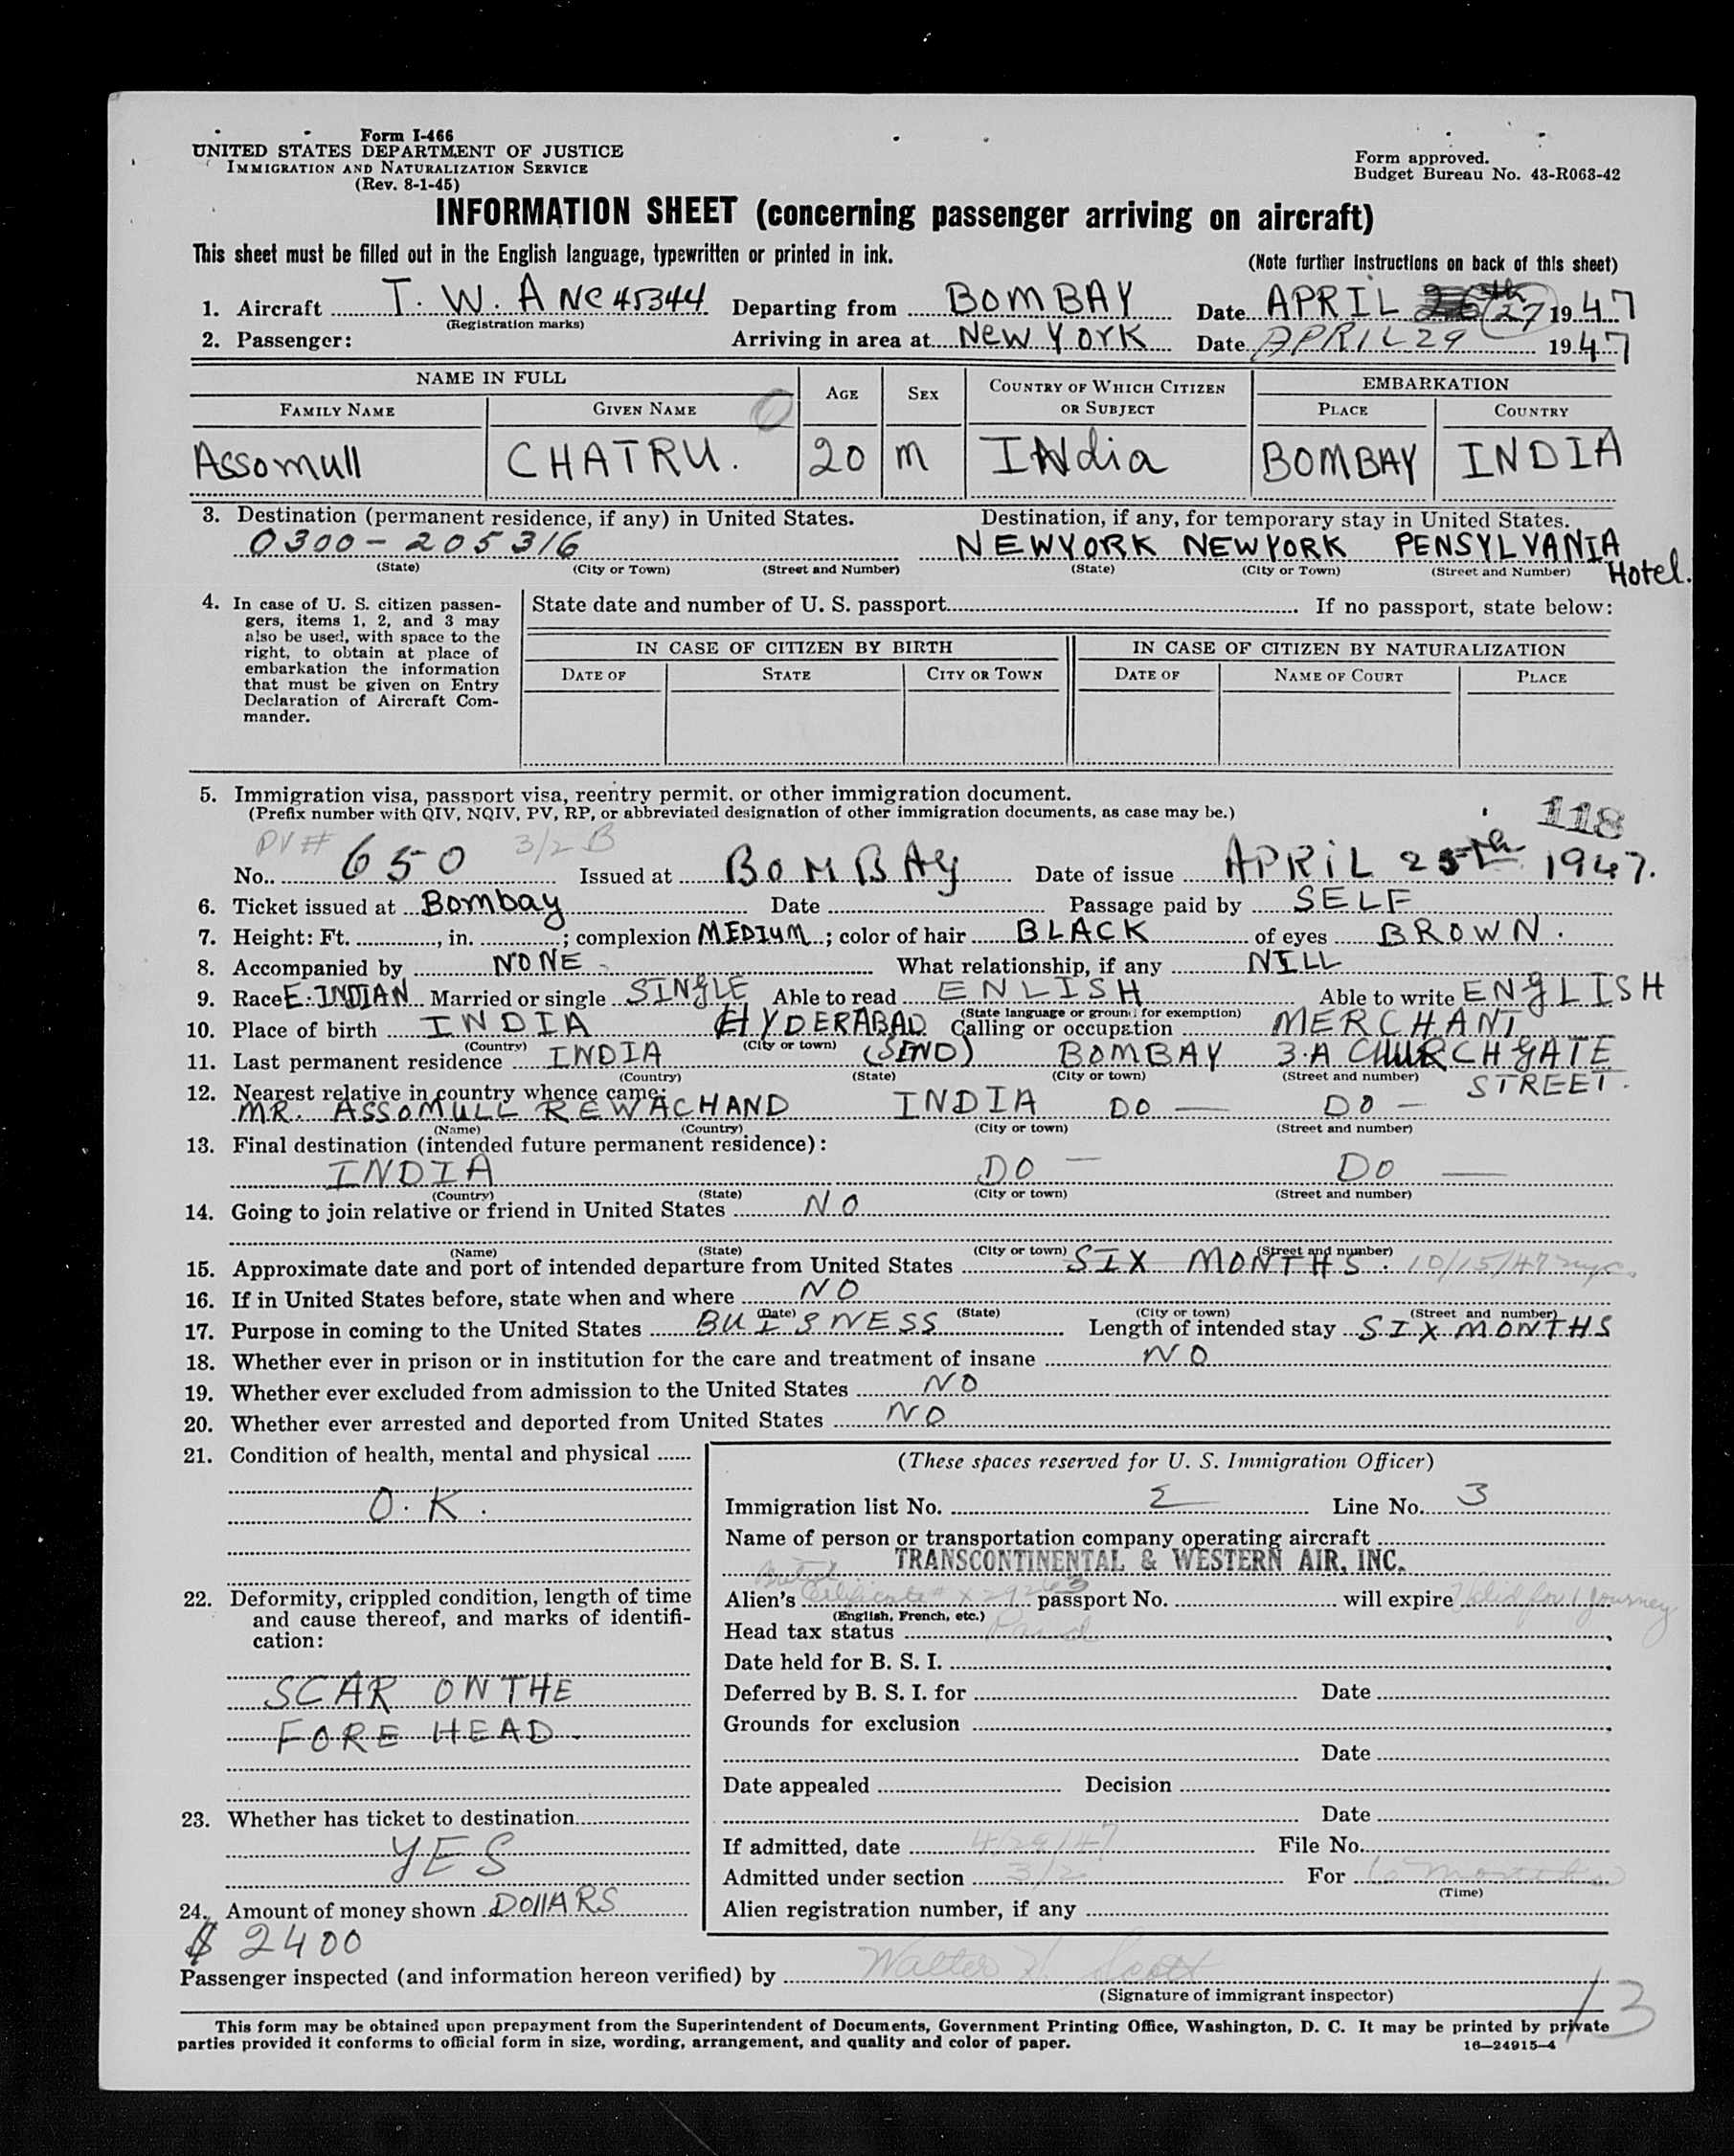 Form I-466
UNITED STATES DEPARTMENT OF JUSTICE
IMMIGRATION AND NATURALIZATION SERVICE
(Rev. 8-1-45)
Form approved.
Budget Bureau No. 43-R063-42
INFORMATION SHEET (concerning passenger arriving on aircraft)
This sheet must be filled out in the English language, typewritten or printed in ink.
(Note further instructions on back of this sheet)
1. Aircraft T. W. A NC 45344 Departing from BOMBAY Date APRIL 27 1947
(Registration marks)
2. Passenger: Arriving in area at NEW YORK Date APRIL 29 1947
NAME IN FULL AGE SEX COUNTRY OF WHICH CITIZEN OR SUBJECT EMBARKATION
FAMILY NAME GIVEN NAME PLACE COUNTRY
Assomull CHATRU. 20 M INdia BOMBAY INDIA
3. Destination (permanent residence, if any) in United States. Destination, if any, for temporary stay in United States.
0300-205316 NEWYORK NEWYORK PENSYLVANIA Hotel.
(State) (City or Town) (Street and Number) (State) (City or Town) (Street and Number)
4. In case of U. S. citizen passengers, items 1, 2, and 3 may also be used, with space to the right, to obtain at place of embarkation the information that must be given on Entry Declaration of Aircraft Commander.
State date and number of U. S. passport If no passport, state below:
IN CASE OF CITIZEN BY BIRTH IN CASE OF CITIZEN BY NATURALIZATION
DATE OF STATE CITY OR TOWN DATE OF NAME OF COURT PLACE
5. Immigration visa, passport visa, reentry permit, or other immigration document.
(Prefix number with QIV, NQIV, PV, RP, or abbreviated designation of other immigration documents, as case may be.)
118
PV # 3/2 B
No. 650 Issued at BOMBAY Date of issue APRIL 25th 1947.
6. Ticket issued at Bombay Date Passage paid by SELF
7. Height: Ft. , in. ; complexion MEDIUM ; color of hair BLACK of eyes BROWN.
8. Accompanied by NONE. What relationship, if any NILL
9. Race E. INDIAN Married or single SINGLE Able to read ENLISH Able to write ENGLISH
(State language or ground for exemption)
10. Place of birth INDIA HYDERABAD Calling or occupation MERCHANT
(Country) (City or town)
11. Last permanent residence INDIA (SIND) BOMBAY 3.A CHURCHGATE STREET.
(Country) (State) (City or town) (Street and number)
12. Nearest relative in country whence came:
MR. ASSOMULL REWACHAND INDIA DO — DO —
(Name) (Country) (City or town) (Street and number)
13. Final destination (intended future permanent residence):
INDIA DO — DO —
(Country) (State) (City or town) (Street and number)
14. Going to join relative or friend in United States NO
(Name) (State) (City or town) (Street and number)
15. Approximate date and port of intended departure from United States SIX MONTHS. 10/15/47
16. If in United States before, state when and where NO
(Date) (State) (City or town) (Street and number)
17. Purpose in coming to the United States BUISNESS Length of intended stay SIX MONTHS
18. Whether ever in prison or in institution for the care and treatment of insane NO
19. Whether ever excluded from admission to the United States NO
20. Whether ever arrested and deported from United States NO
21. Condition of health, mental and physical
O.K.
22. Deformity, crippled condition, length of time and cause thereof, and marks of identification:
SCAR ON THE
FORE HEAD.
23. Whether has ticket to destination
YES
24. Amount of money shown DOllARS
$ 2400
(These spaces reserved for U. S. Immigration Officer)
Immigration list No. 2 Line No. 3
Name of person or transportation company operating aircraft
TRANSCONTINENTAL & WESTERN AIR, INC.
Alien's Certificate # X29263 passport No. will expire Valid for 1 Journey
(English, French, etc.)
Head tax status Paid
Date held for B. S. I.
Deferred by B. S. I. for Date
Grounds for exclusion
Date
Date appealed Decision
Date
If admitted, date 4/29/47 File No.
Admitted under section 3/2 For 6 months
(Time)
Alien registration number, if any
Passenger inspected (and information hereon verified) by Walter H. Scott
(Signature of immigrant inspector)
13
This form may be obtained upon prepayment from the Superintendent of Documents, Government Printing Office, Washington, D. C. It may be printed by private
parties provided it conforms to official form in size, wording, arrangement, and quality and color of paper.
16—24915-4